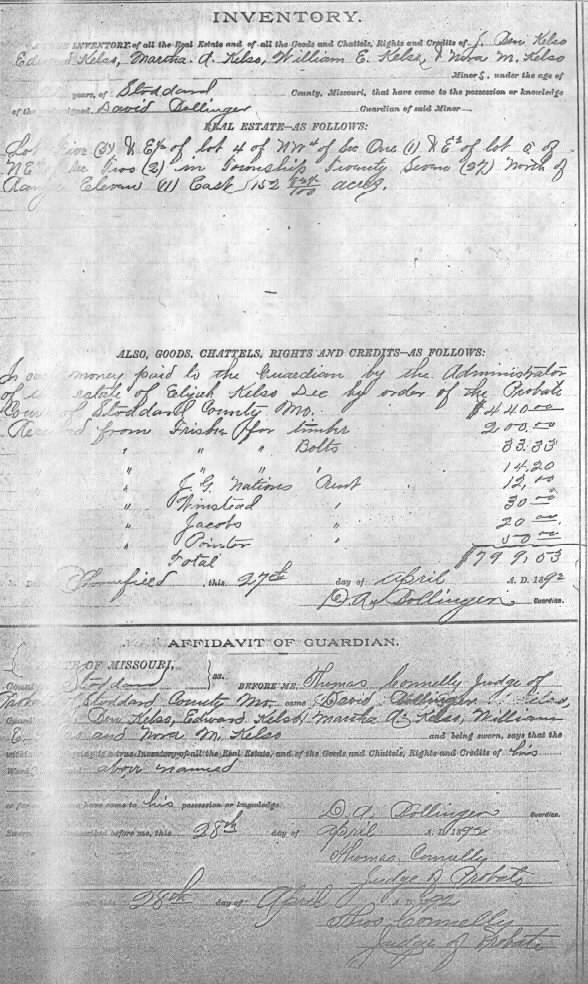 INVENTORY.
INVENTORY of all the Real Estate and of all the Goods and Chattels, Rights and Credits of J. Ben Kelso
Edward Kelso, Martha. A. Kelso, William E. Kelso, & Nora M. Kelso
Minors, under the age of
years, of Stoddard County, Missouri, that have come to the possession or knowledge
of the David Bollinger Guardian of said Minor
REAL ESTATE—AS FOLLOWS:
Lot Five (5) & E½ of lot 4 of N.W4 of Sec One (1) & E½ of lot 2 of
NE4 of Sec Two (2) in Township Twenty Seven (27) North of
Range Eleven (11) East 152 acres.
ALSO, GOODS, CHATTELS, RIGHTS AND CREDITS—AS FOLLOWS:
In money paid to the Guardian by the Administrator
of estate of Elijah Kelso Dec by order of the Probate
Court of Stoddard County Mo. $440.00
Received from for timber 200.00
" " " Bolts 33.33
" " " " 14.20
" J. G. Rent 12.00
" Winstead " 30.00
" Jacobs " 20.00
" Pointer " 50.00
Total $799.53
Bloomfield, this 27th day of April A. D. 1892
D. A. Bollinger Guardian.
AFFIDAVIT OF GUARDIAN.
OF MISSOURI,
Stoddard ss. BEFORE ME, Thomas Connelly Judge of
Stoddard County Mo. came David Bollinger
Ben Kelso, Edward Kelso, Martha A. Kelso, William
E and Nora M. Kelso and being sworn, says that the
within is a true Inventory of all the Real Estate, and of the Goods and Chattels, Rights and Credits of his
Ward above named
have come to his possession or knowledge.
D. A. Bollinger Guardian.
before me, this 28th day of April A. D. 1892
Thomas Connelly
Judge of Probate
28th day of April A. D. 1892
Thos Connelly
Judge of Probate